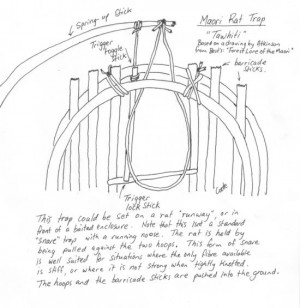 Spring-up Stick
Maori Rat Trap
"Tawhiti"
Based on a drawing by Atkinson
from Best's "Forest Lore of the Maori"
Trigger
toggle
stick
barricade
sticks.
Trigger
lock stick
This trap could be set on a rat "runway", or in
front of a baited enclosure. Note that this isn't a standard
"snare" trap with a running noose. The rat is held by
being pulled against the two hoops. This form of snare
is well suited for situations where the only fibre available
is stiff, or where it is not strong when tightly knotted.
The hoops and the barricade sticks are pushed into the ground.